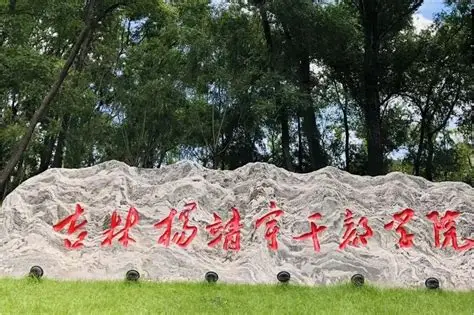 吉林杨靖宇干部学院